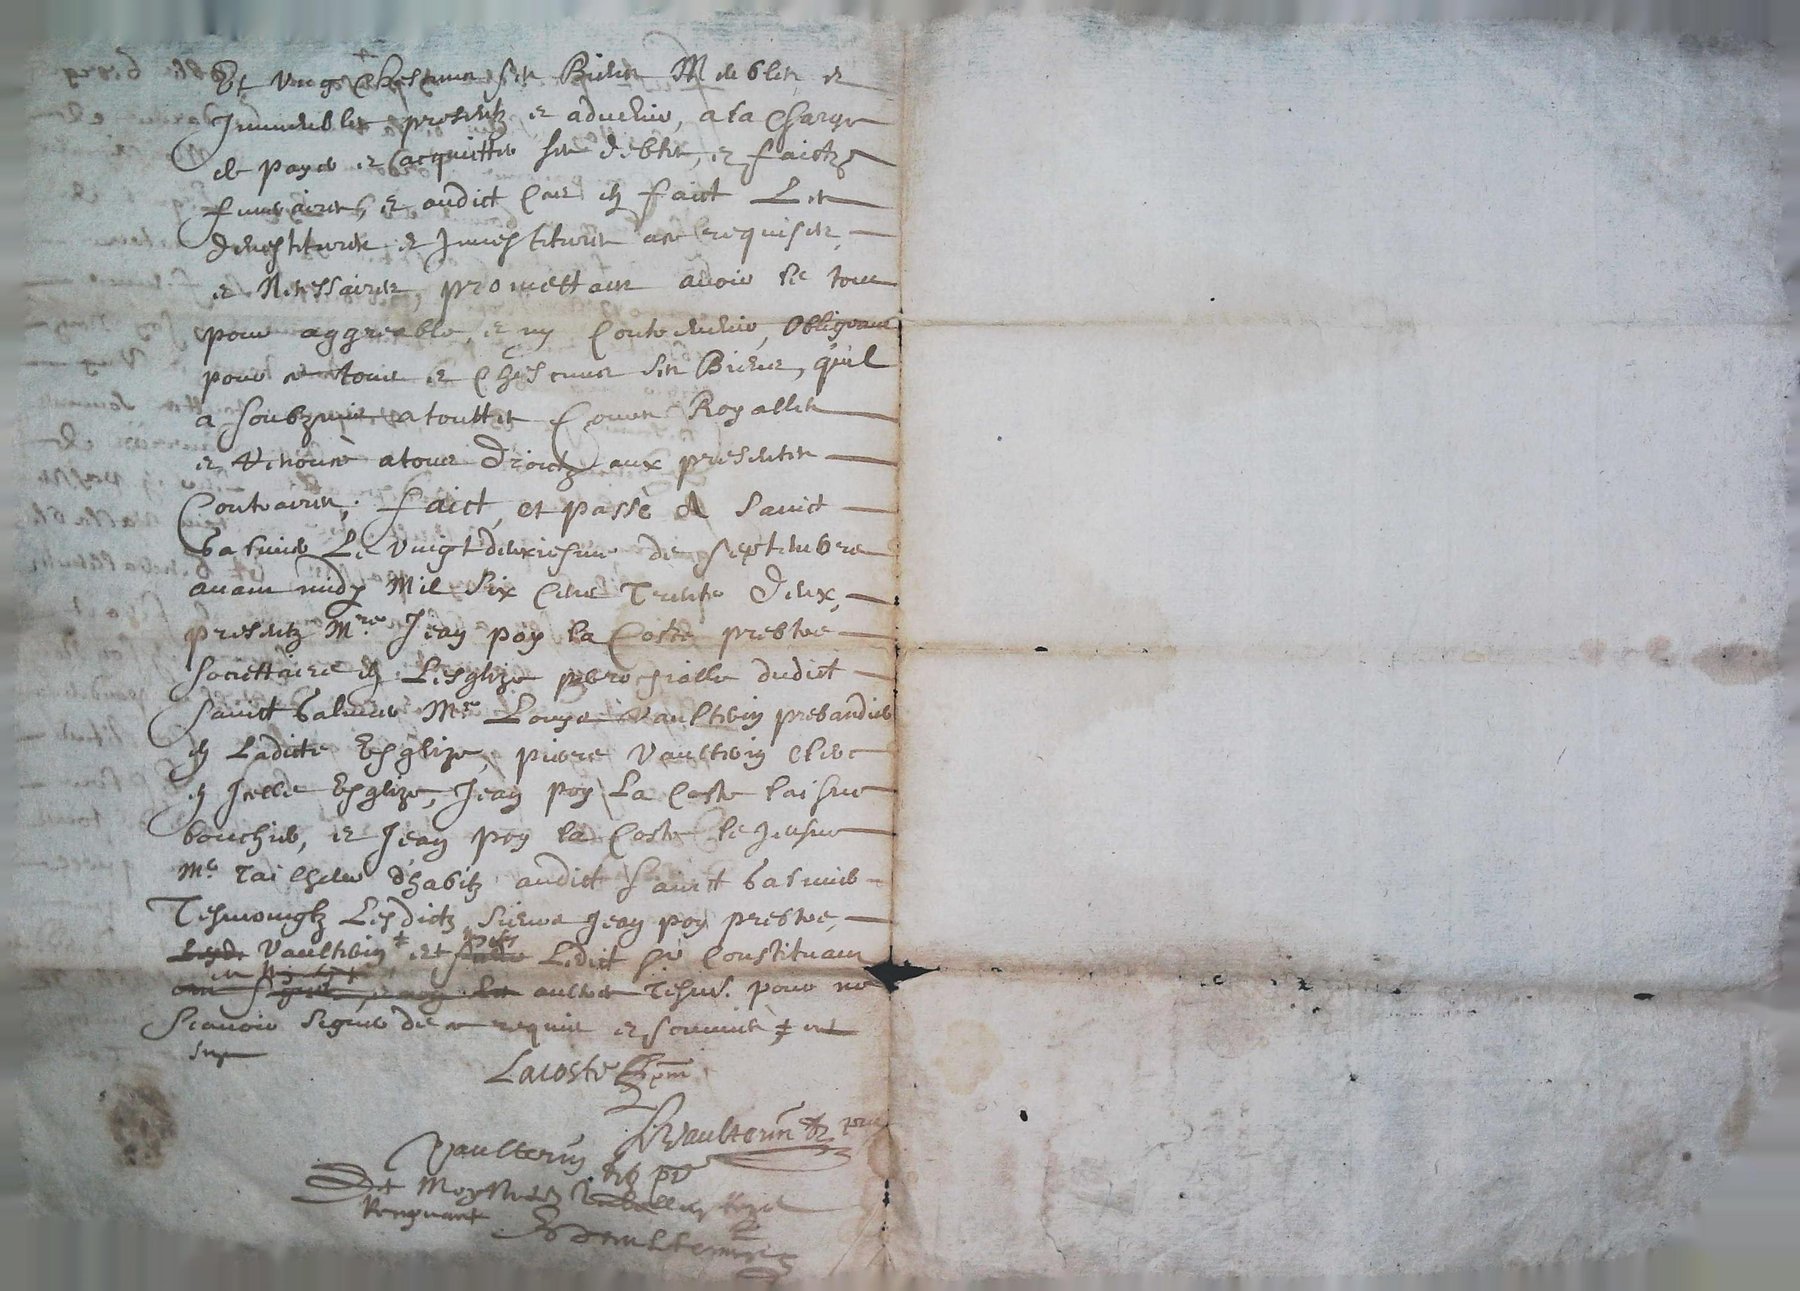 Et ung Chescune ses Biens Meubles et
Immeubles presentz et advenir, a la Charge
de payer et acquitter ses debtes, et faictz
funeraires, et audict Cas en faict Les
devestitures et Investitures ace requises,
et Necessaires, promettant avoir le tout
pour aggreable, et ny Contrevenir, Obligeant
pour ce tous et Chescuns ses Biens, quil
a soubzmis a touttes Cours Royalles
et Renoncé a tous droictz aux presentes
Contraires, faict, et passé A Sainct
Galmier Le vingtdeuxiesme de septembre
avant midy Mil Six Cens Trente deux,
presentz Mre Jean poy la Coste prebtre
Societtaire en Lesglize parochialle dudict
Sainct Galmier Mre Louys Vaulterin prebandier
en Ladicte Esglize, pierre Vaulterin clerc
en Icelle Esglize, Jean poy La Coste laisne
bouchier, et Jean poy la Coste le Jeusne
Me Tailheur dhabitz audict Sainct Galmier
Tesmoingtz Lesdictz Sieurs Jean poy prebtre,
Vaulterin et Ledict sr Constituant
aultres Tesms. pour ne
Scavoir Signer de ce requis et sommés
Lacoste
Vaulterin
Vaulterin